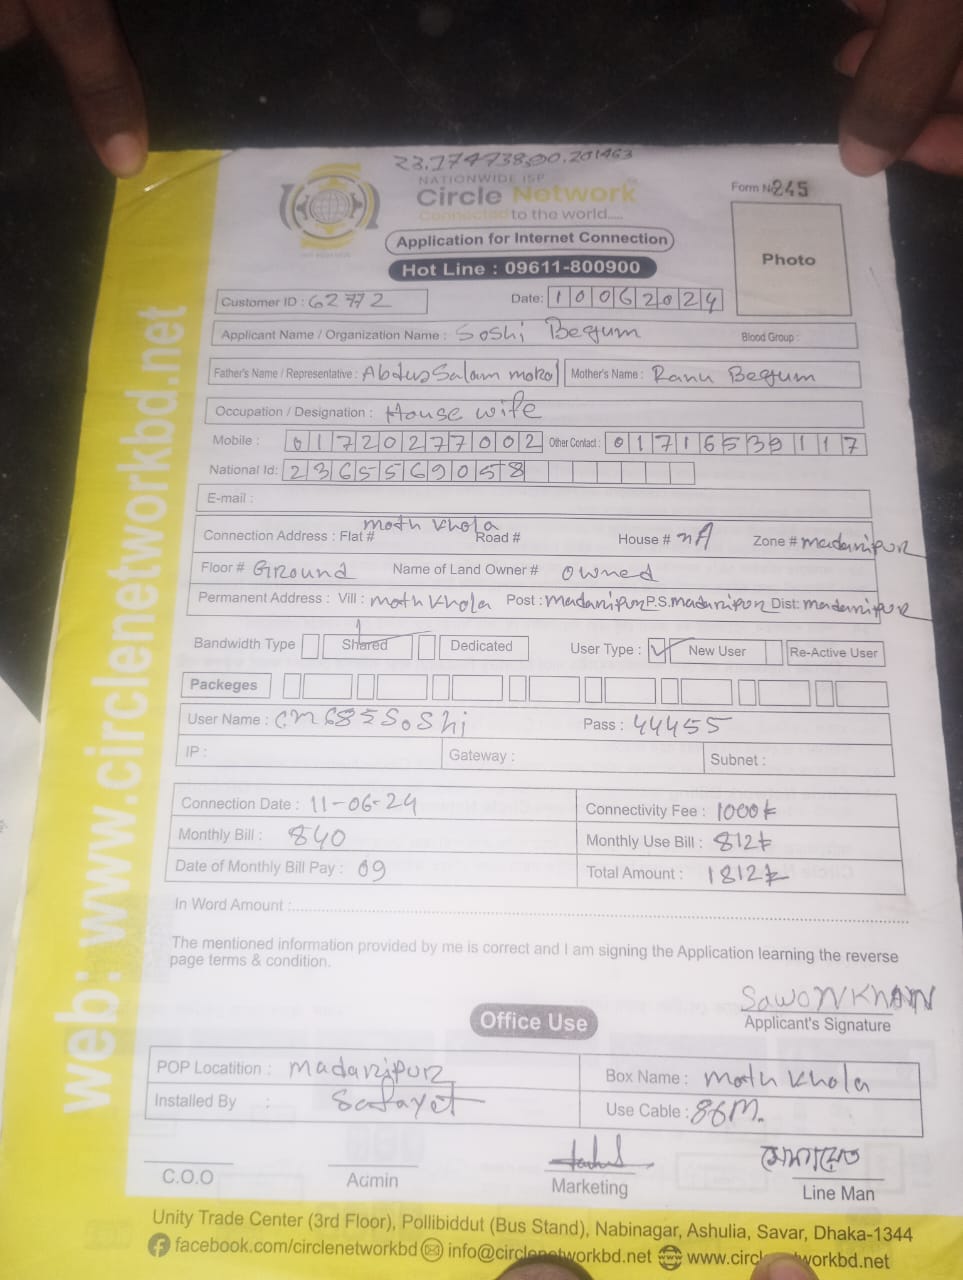 23.1747380,90.201463
NATIONWIDE ISP
Circle Network
Connected to the world.....
Form No 245
Application for Internet Connection
Hot Line : 09611-800900
Photo
Customer ID : 62772 Date: 10062024
Applicant Name / Organization Name : Soshi Begum Blood Group :
Father's Name / Representative : Abdus Salam Mother's Name : Ranu Begum
Occupation / Designation : House wife
Mobile : 01720277002 Other Contact : 01716539117
National Id: 2365569058
E-mail :
Connection Address : Flat # moth Khola Road # House # nA Zone # madaripur
Floor # Ground Name of Land Owner # owned
Permanent Address : Vill : moth Khola Post : madaripur P.S. madaripur Dist: madaripur
Bandwidth Type Shared Dedicated User Type : New User Re-Active User
Packeges
User Name : Pass : 44455
IP : Gateway : Subnet :
Connection Date : 11-06-24 Connectivity Fee : 1000
Monthly Bill : 840 Monthly Use Bill : 812
Date of Monthly Bill Pay : 09 Total Amount : 1812
In Word Amount :
The mentioned information provided by me is correct and I am signing the Application learning the reverse
page terms & condition.
SawoN KHAN
Applicant's Signature
Office Use
POP Locatition : madaripur Box Name : moth Khola
Installed By : Safayet Use Cable : 86M.
C.O.O Admin Marketing Line Man
Unity Trade Center (3rd Floor), Pollibiddut (Bus Stand), Nabinagar, Ashulia, Savar, Dhaka-1344
facebook.com/circlenetworkbd info@circlenetworkbd.net www.circlenetworkbd.net
web: www.circlenetworkbd.net